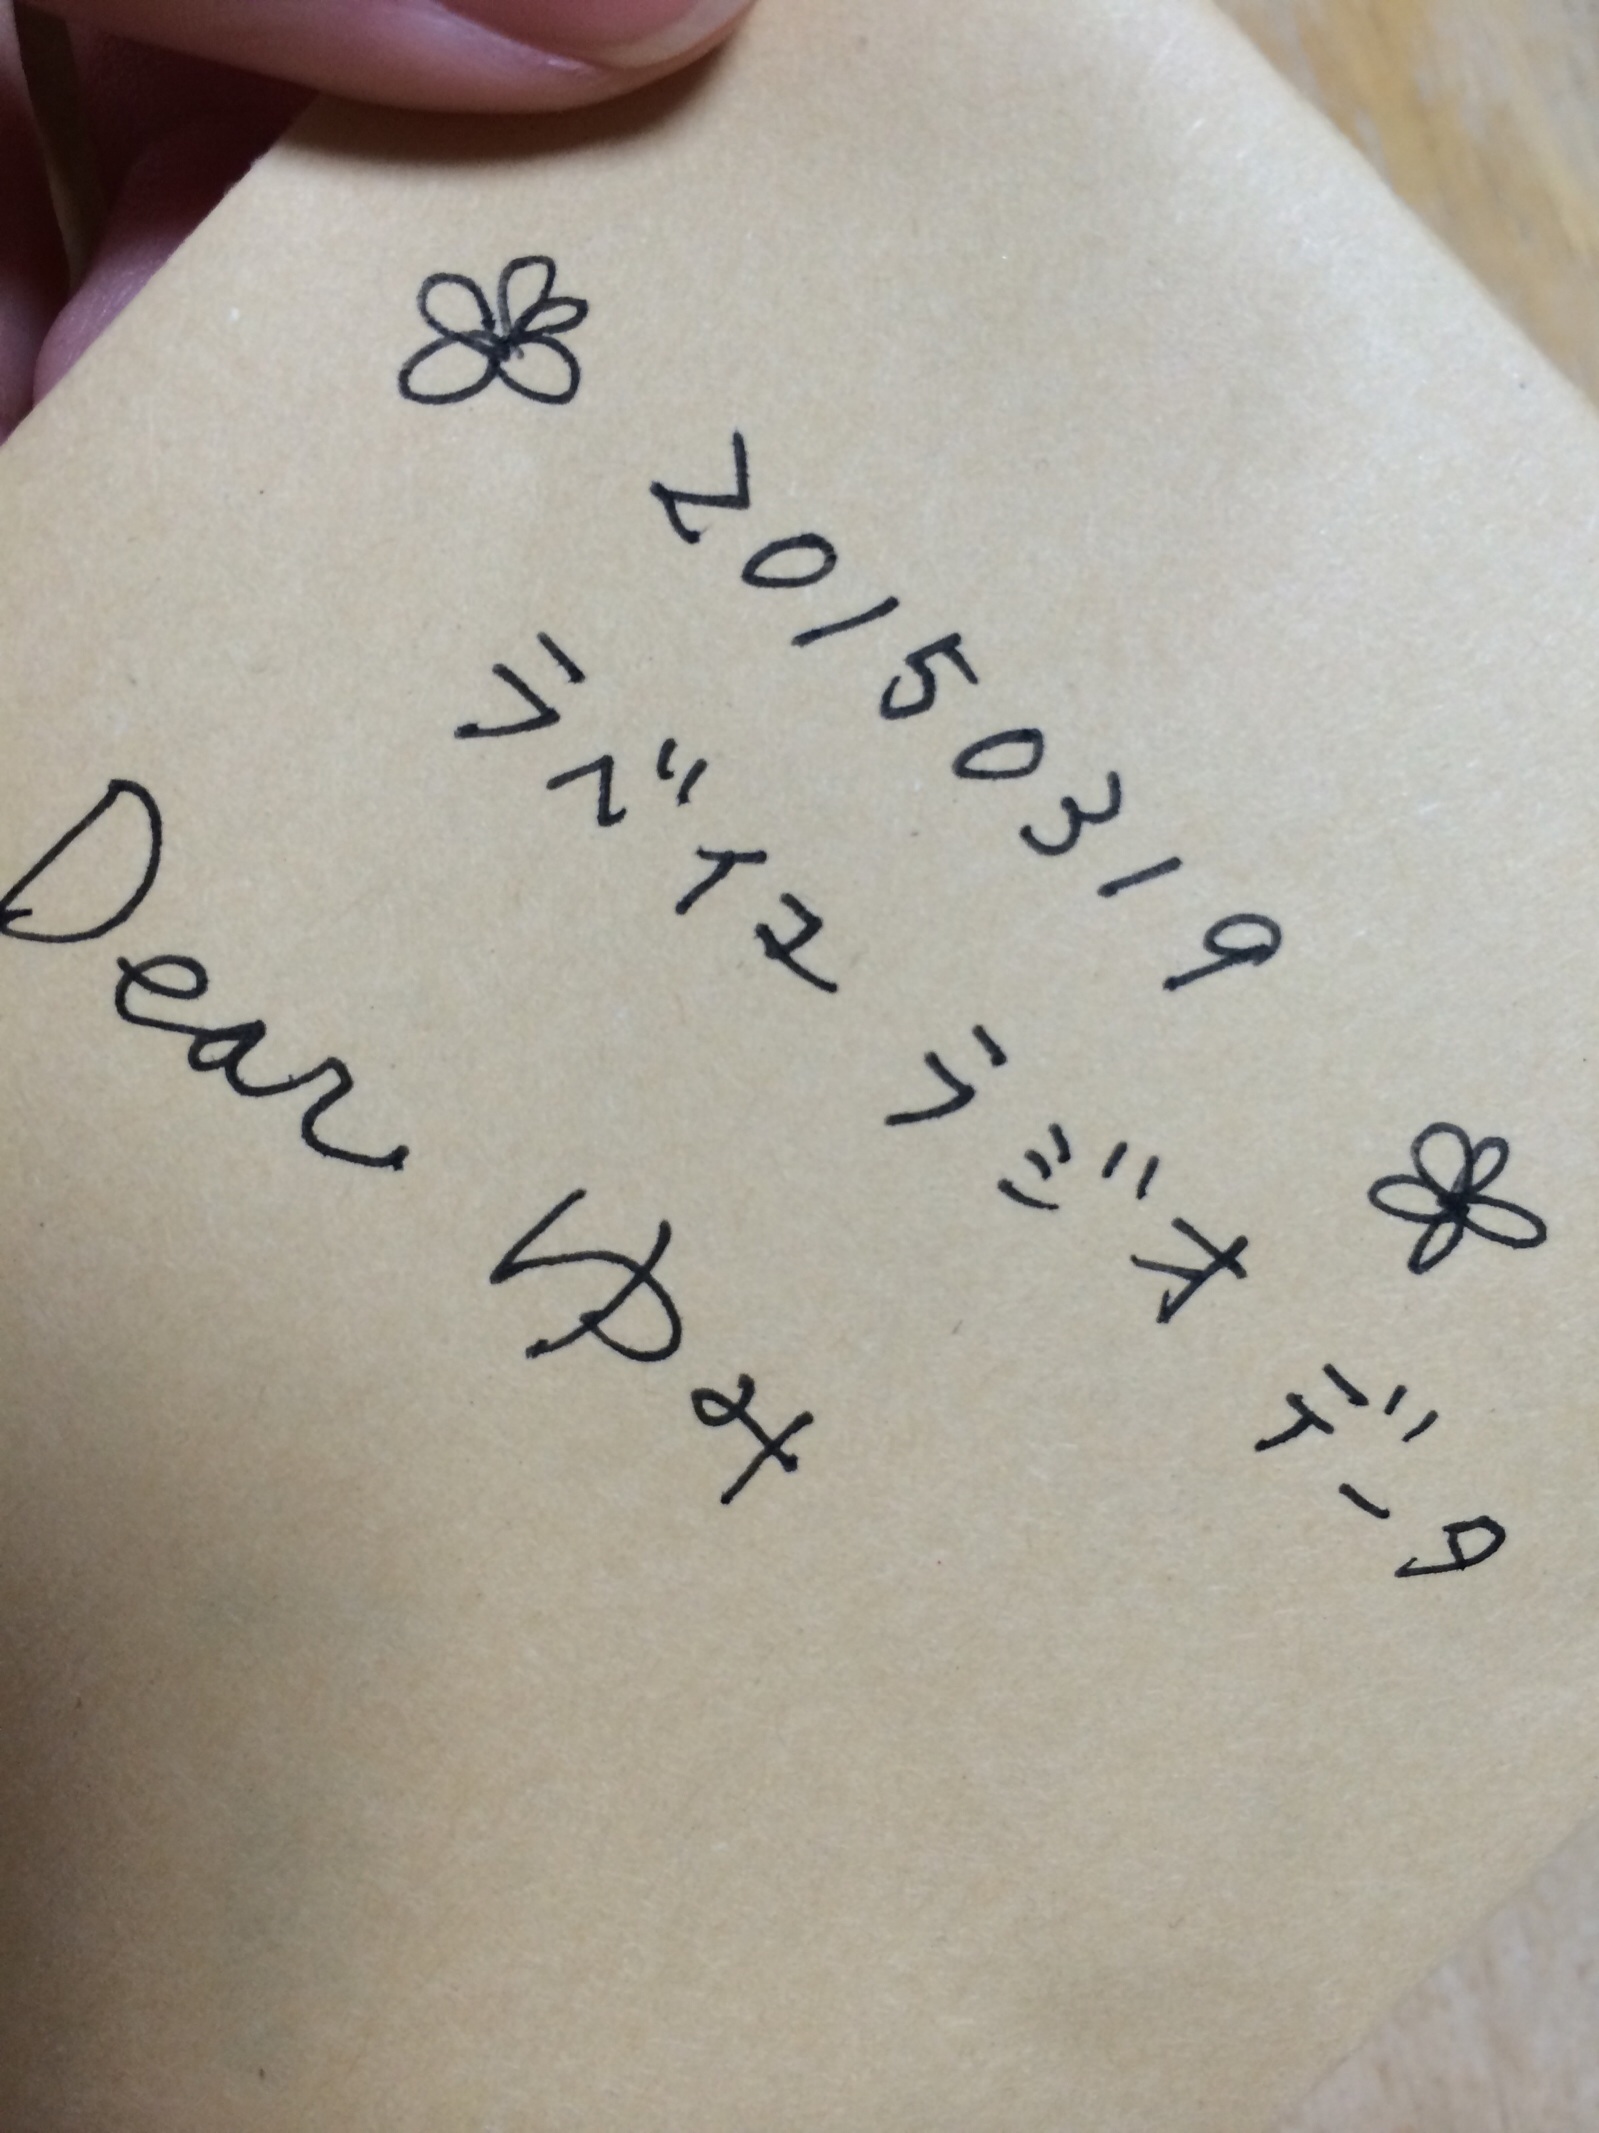 20150319
ラベイユ ラジオ データ
Dear ゆみ